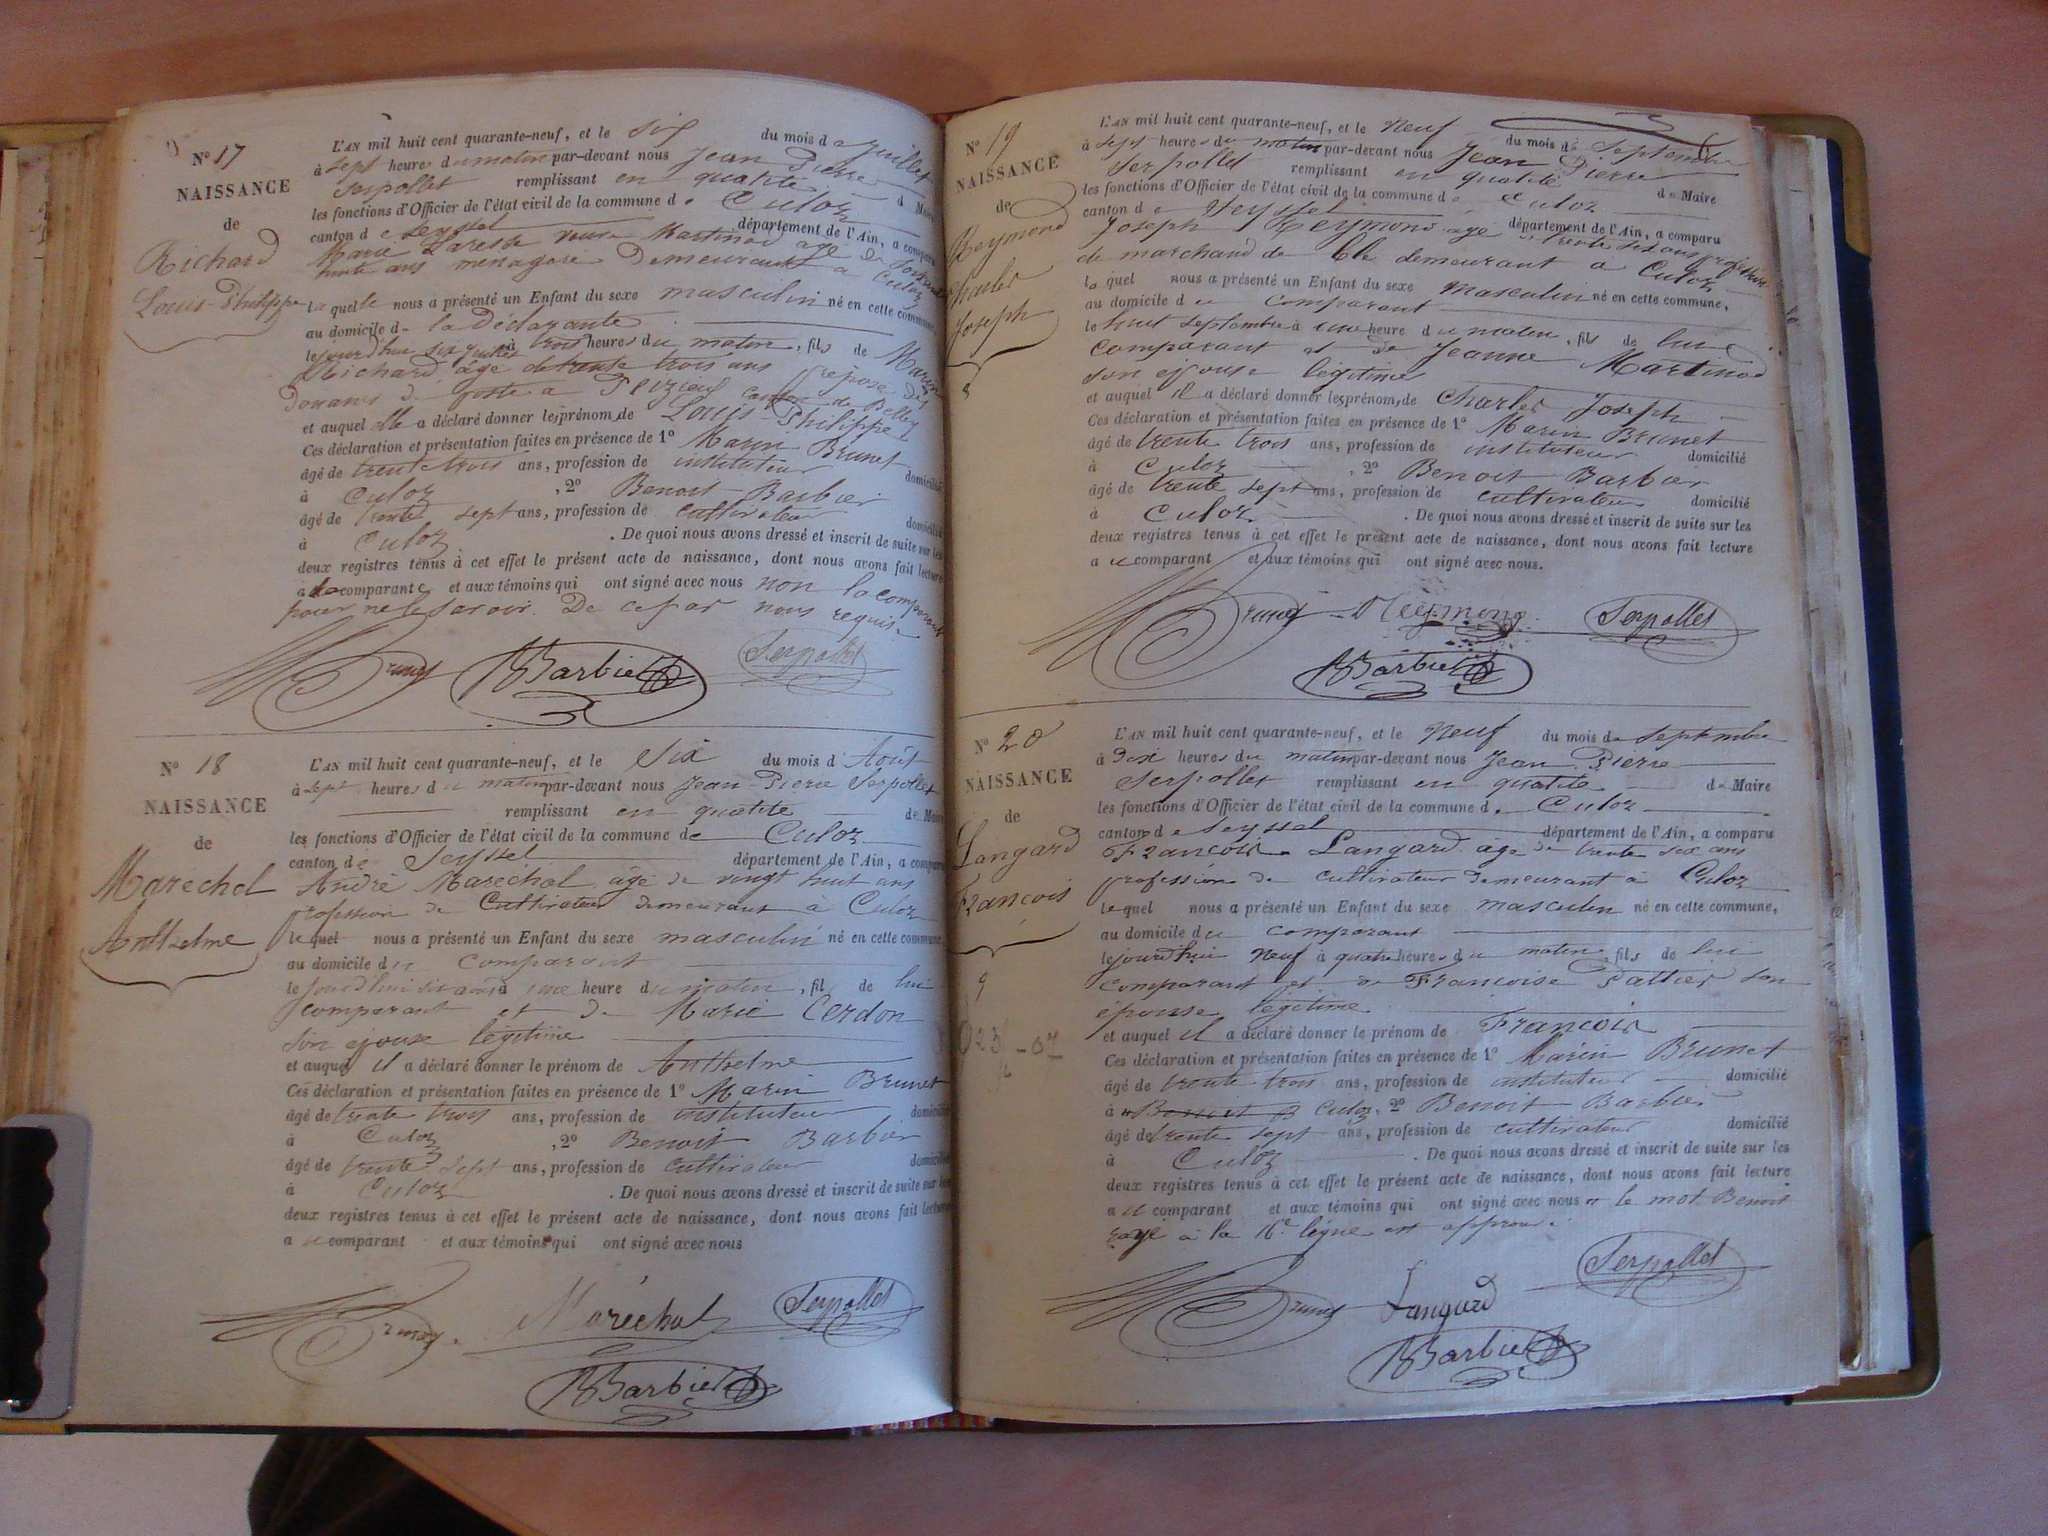 N° 17
NAISSANCE
de
Richard
Louis-Philippe
L'AN mil huit cent quarante-neuf, et le six du mois de juillet
à sept heures du matin par-devant nous Jean Pierre
Serpollet remplissant en qualité de Maire
les fonctions d'Officier de l'état civil de la commune de Culoz
canton de Seyssel département de l'Ain, a comparu
Marie veuve Martinod age de
ans menagere demeurant a Culoz
laquelle nous a présenté un Enfant du sexe masculin né en cette commune,
au domicile de la déclarante
le jourd'hui six juillet à trois heures du matin, fils de Marin
Richard, age de trente trois ans preposé des
Douanes de poste a canton de Belley
et auquel elle a déclaré donner les prénoms de Louis-Philippe
Ces déclaration et présentation faites en présence de 1° Marin Brunet
âgé de trente trois ans, profession de instituteur domicilié
à Culoz, 2° Benoit Barbier
âgé de trente sept ans, profession de cultivateur domicilié
à Culoz. De quoi nous avons dressé et inscrit de suite sur les
deux registres tenus à cet effet le présent acte de naissance, dont nous avons fait lecture
a la comparante et aux témoins qui ont signé avec nous non la comparante
pour ne le savoir. De ce par nous requise
Brunet BBarbier Serpollet
N° 18
NAISSANCE
de
Marechal
Anthelme
L'AN mil huit cent quarante-neuf, et le Six du mois d'Août
à sept heures du matin par-devant nous Jean-Pierre Serpollet
remplissant en qualité de Maire
les fonctions d'Officier de l'état civil de la commune de Culoz
canton de Seyssel département de l'Ain, a comparu
André Marechal âgé de vingt huit ans
profession de Cultivateur demeurant à Culoz
lequel nous a présenté un Enfant du sexe masculin né en cette commune,
au domicile du comparant
le jourd'hui six août à une heure du matin, fil de lui
comparant et de Marie Cerdon
son epouse légitime
et auquel il a déclaré donner le prénom de Anthelme
Ces déclaration et présentation faites en présence de 1° Marin Brunet
âgé de trente trois ans, profession de instituteur domicilié
à Culoz, 2° Benoit Barbier
âgé de trente sept ans, profession de cultivateur domicilié
à Culoz. De quoi nous avons dressé et inscrit de suite sur les
deux registres tenus à cet effet le présent acte de naissance, dont nous avons fait lecture
au comparant et aux témoins qui ont signé avec nous
Brunet Maréchal Serpollet
BBarbier
N° 19
NAISSANCE
de
Reymond
Charles
Joseph
8
L'AN mil huit cent quarante-neuf, et le neuf du mois de Septembre
à sept heures du matin par-devant nous Jean Pierre
Serpollet remplissant en qualité de Maire
les fonctions d'Officier de l'état civil de la commune de Culoz
canton de Seyssel département de l'Ain, a comparu
Joseph Reymond âgé de trente six ans profession
de marchand de blé demeurant a Culoz
lequel nous a présenté un Enfant du sexe masculin né en cette commune,
au domicile du comparant
le huit septembre à une heure du matin, fils de lui
comparant et de Jeanne Martinod
son epouse légitime
et auquel il a déclaré donner les prénoms de Charles Joseph
Ces déclaration et présentation faites en présence de 1° Marin Brunet
âgé de trente trois ans, profession de instituteur domicilié
à Culoz, 2° Benoit Barbier
âgé de trente sept ans, profession de cultivateur domicilié
à Culoz. De quoi nous avons dressé et inscrit de suite sur les
deux registres tenus à cet effet le présent acte de naissance, dont nous avons fait lecture
au comparant et aux témoins qui ont signé avec nous.
Brunet Reymond Serpollet
BBarbier
N° 20
NAISSANCE
de
Langard
François
9
L'AN mil huit cent quarante-neuf, et le neuf du mois de septembre
à dix heures du matin par-devant nous Jean Pierre
Serpollet remplissant en qualité de Maire
les fonctions d'Officier de l'état civil de la commune de Culoz
canton de Seyssel département de l'Ain, a comparu
François Langard âgé de trente six ans
profession de cultivateur demeurant à Culoz
lequel nous a présenté un Enfant du sexe masculin né en cette commune,
au domicile du comparant
le jourd'hui neuf à quatre heures du matin, fils de lui
comparant et de Francoise Pattier son
épouse légitime
et auquel il a déclaré donner le prénom de François
Ces déclaration et présentation faites en présence de 1° Marin Brunet
âgé de trente trois ans, profession de instituteur domicilié
à Benoit B Culoz, 2° Benoit Barbier
âgé de trente sept ans, profession de cultivateur domicilié
à Culoz. De quoi nous avons dressé et inscrit de suite sur les
deux registres tenus à cet effet le présent acte de naissance, dont nous avons fait lecture
au comparant et aux témoins qui ont signé avec nous le mot Benoit
rayé à la 16e ligne est approuvé
Serpollet
Brunet Langard
BBarbier